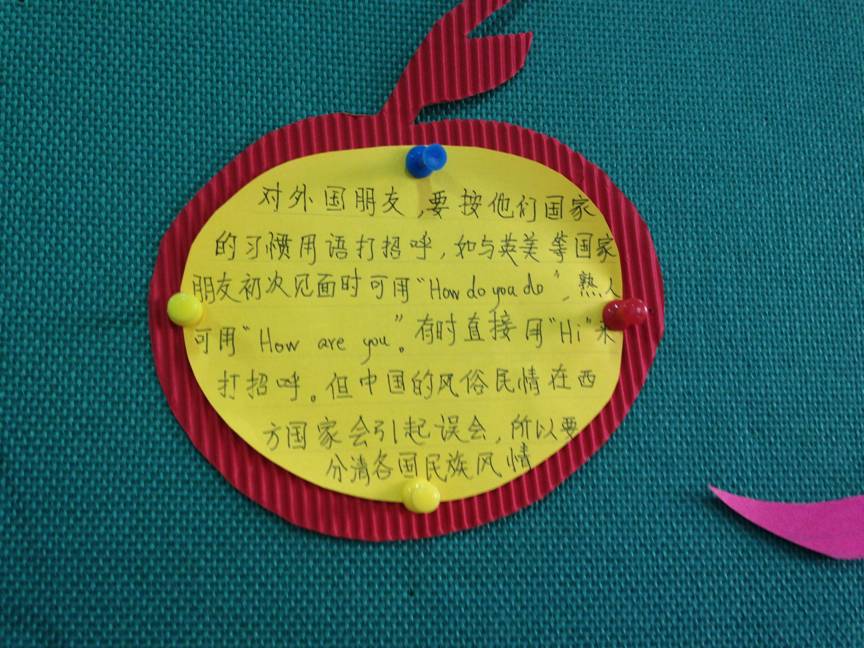 对外国朋友,要按他们国家
的习惯用语打招呼,如与英美等国家
朋友初次见面时可用“How do you do”,熟人
可用“How are you”。有时直接用“Hi”来
打招呼。但中国的风俗民情在西
方国家会引起误会,所以要
分清各国民族风情